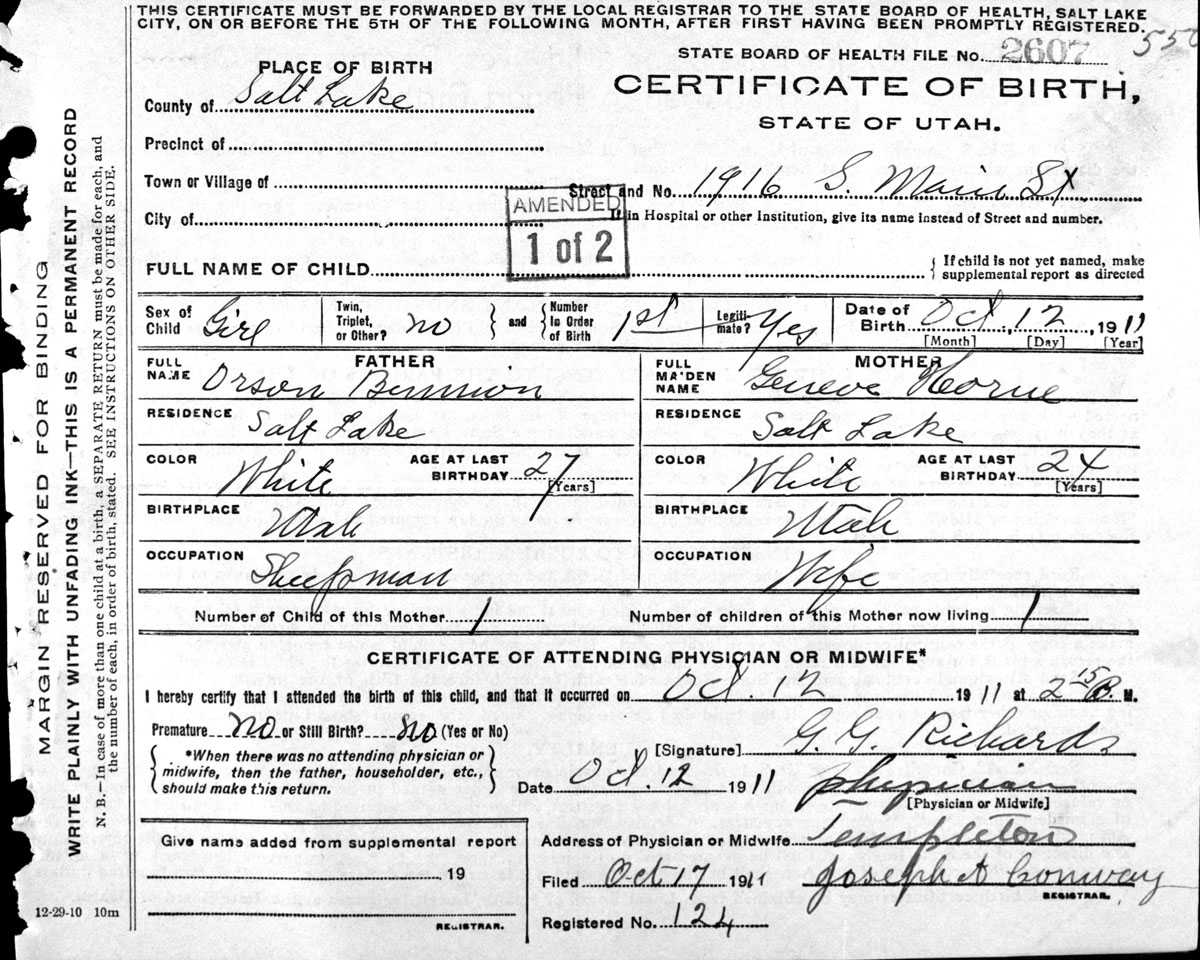 THIS CERTIFICATE MUST BE FORWARDED BY THE LOCAL REGISTRAR TO THE STATE BOARD OF HEALTH, SALT LAKE
CITY, ON OR BEFORE THE 5TH OF THE FOLLOWING MONTH, AFTER FIRST HAVING BEEN PROMPTLY REGISTERED.
STATE BOARD OF HEALTH FILE No. 2607
PLACE OF BIRTH
CERTIFICATE OF BIRTH,
STATE OF UTAH.
County of Salt Lake
Precinct of
Town or Village of
Street and No. 1916 S. Main St
City of
If in Hospital or other Institution, give its name instead of Street and number.
AMENDED
1 of 2
FULL NAME OF CHILD
If child is not yet named, make
supplemental report as directed
Sex of Child Girl
Twin, Triplet, or Other? no
and Number In Order of Birth 1st
Legiti-mate? Yes
Date of Birth Oct. 12, 1911
[Month] [Day] [Year]
FATHER
FULL NAME Orson Bennion
RESIDENCE Salt Lake
COLOR White
AGE AT LAST BIRTHDAY 27
[Years]
BIRTHPLACE Utah
OCCUPATION Sheepman
MOTHER
FULL MAIDEN NAME Geneve Horne
RESIDENCE Salt Lake
COLOR White
AGE AT LAST BIRTHDAY 24
[Years]
BIRTHPLACE Utah
OCCUPATION Wife
Number of Child of this Mother 1
Number of children of this Mother now living 1
CERTIFICATE OF ATTENDING PHYSICIAN OR MIDWIFE*
I hereby certify that I attended the birth of this child, and that it occurred on Oct. 12 1911 at 2 15 P. M.
Premature no or Still Birth? no (Yes or No)
*When there was no attending physician or
midwife, then the father, householder, etc.,
should make this return.
[Signature] G. G. Richards
Date Oct. 12 1911 physician
[Physician or Midwife]
Give name added from supplemental report
19
REGISTRAR.
Address of Physician or Midwife Templeton
Filed Oct 17 1911 Joseph A Conway
REGISTRAR.
Registered No. 124
12-29-10 10m
MARGIN RESERVED FOR BINDING
WRITE PLAINLY WITH UNFADING INK—THIS IS A PERMANENT RECORD
N. B.—In case of more than one child at a birth, a SEPARATE RETURN must be made for each, and
the number of each, in order of birth, stated. SEE INSTRUCTIONS ON OTHER SIDE.